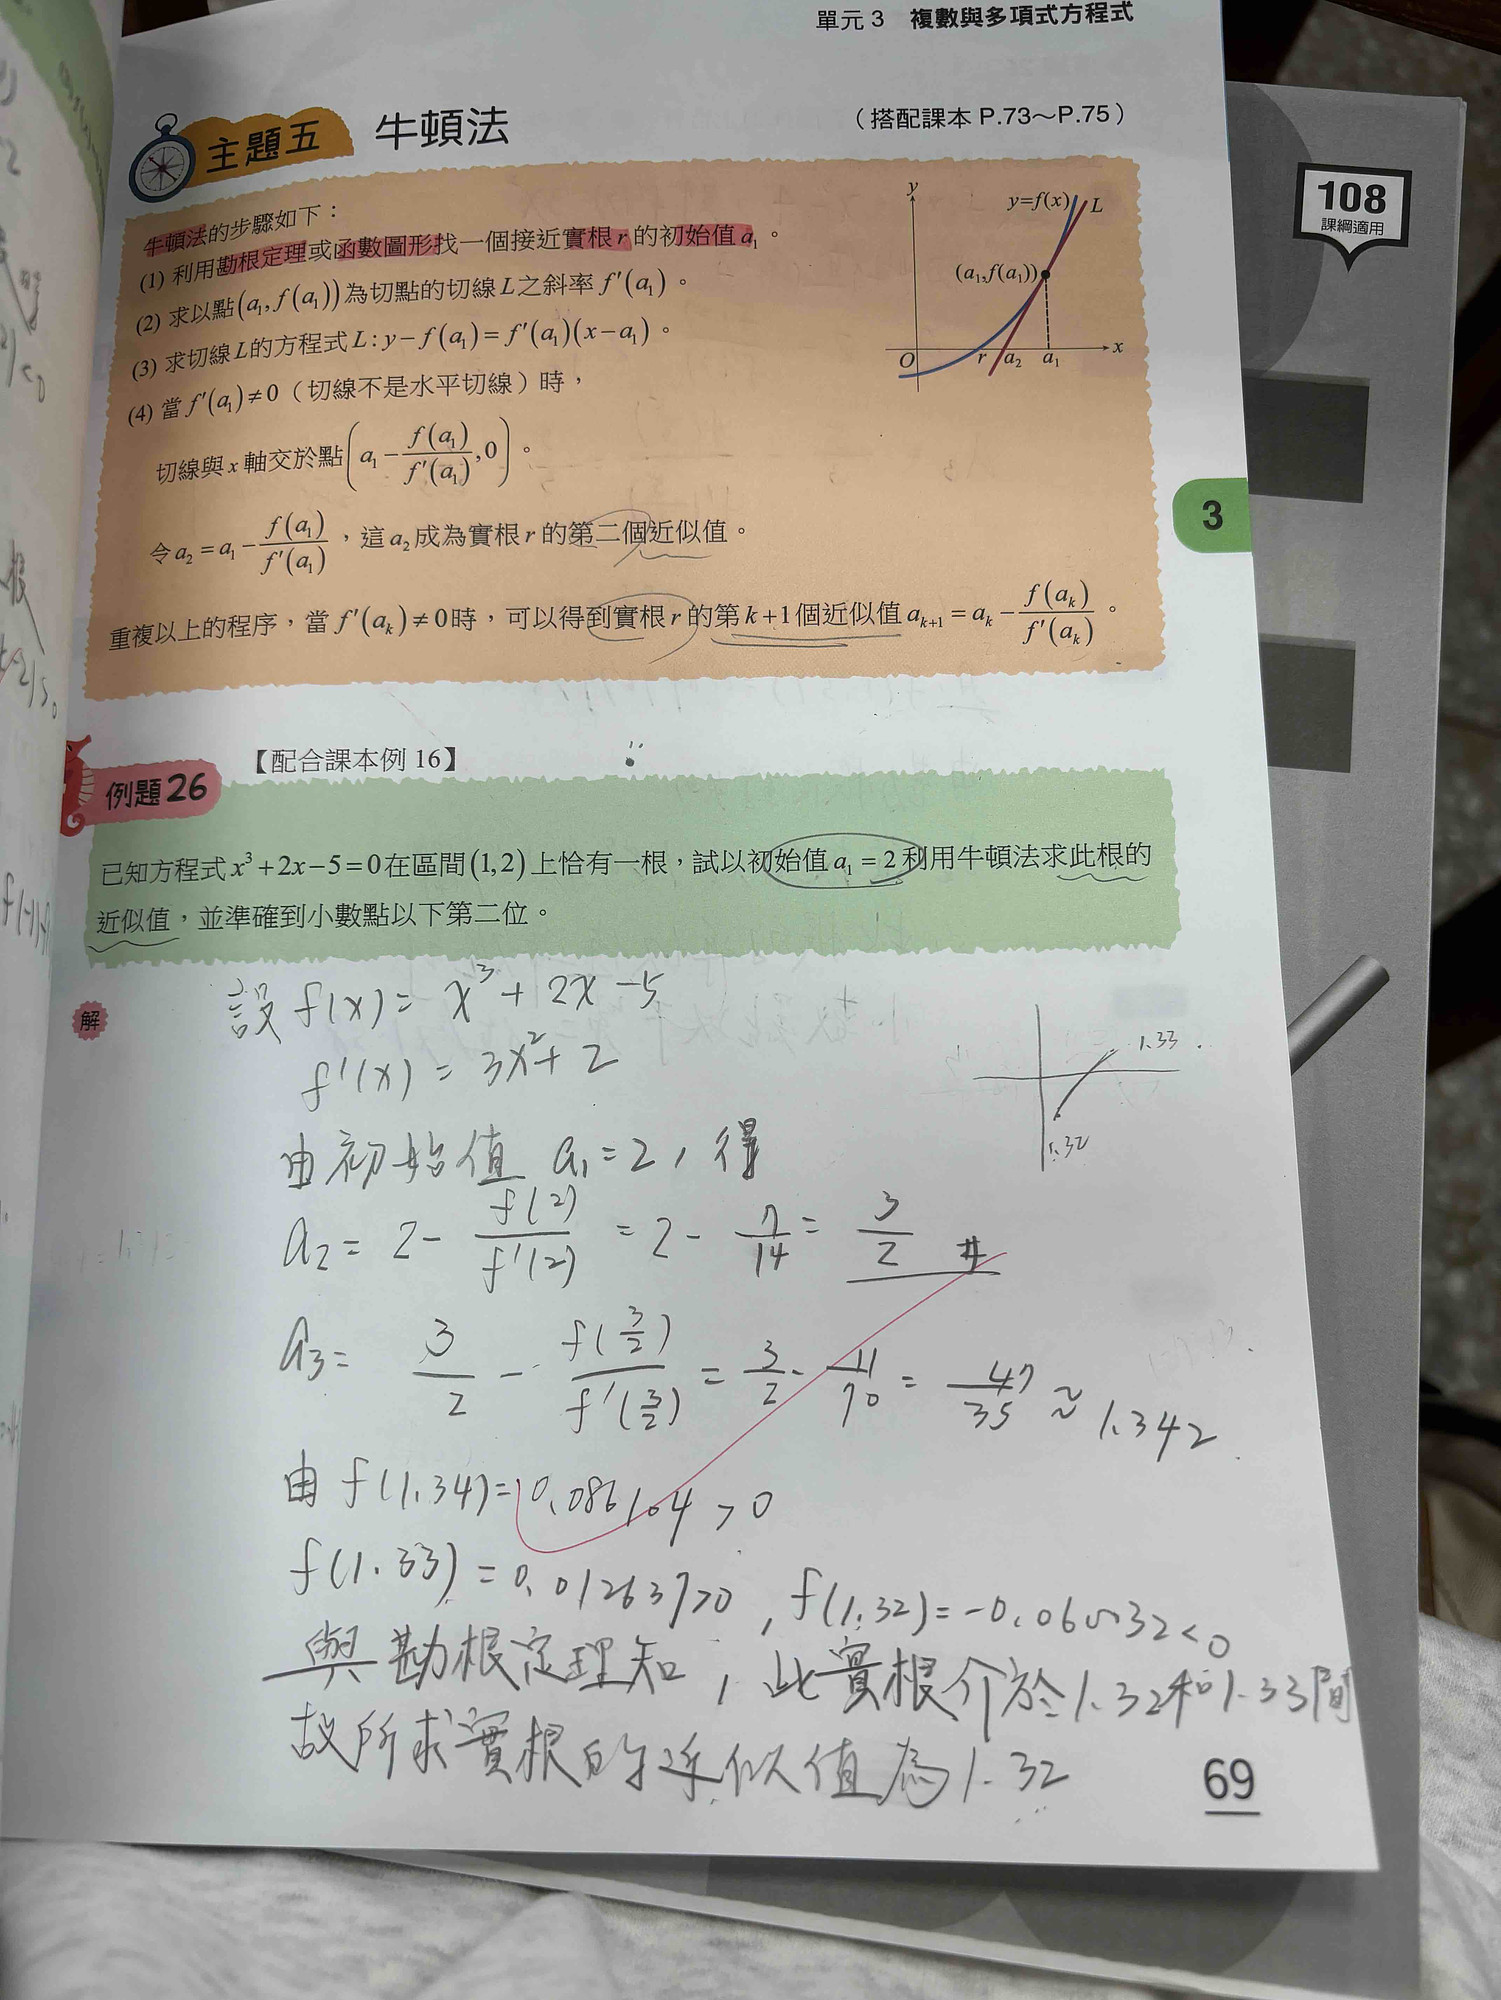 單元 3 複數與多項式方程式
主題五 牛頓法 (搭配課本 P.73~P.75)
108
課綱適用
牛頓法的步驟如下：
(1) 利用勘根定理或函數圖形找一個接近實根 r 的初始值 a₁。
(2) 求以點 (a₁, f(a₁)) 為切點的切線 L 之斜率 f′(a₁)。
(3) 求切線 L 的方程式 L : y − f(a₁) = f′(a₁)(x − a₁)。
(4) 當 f′(a₁) ≠ 0（切線不是水平切線）時，
切線與 x 軸交於點 (a₁ − f(a₁)/f′(a₁), 0)。
令 a₂ = a₁ − f(a₁)/f′(a₁)，這 a₂ 成為實根 r 的第二個近似值。
重複以上的程序，當 f′(aₖ) ≠ 0 時，可以得到實根 r 的第 k+1 個近似值 aₖ₊₁ = aₖ − f(aₖ)/f′(aₖ)。
y
y=f(x)
L
(a₁,f(a₁))
O r a₂ a₁ x
3
【配合課本例 16】
例題26
已知方程式 x³ + 2x − 5 = 0 在區間 (1, 2) 上恰有一根，試以初始值 a₁ = 2 利用牛頓法求此根的
近似值，並準確到小數點以下第二位。
解
設 f(x) = x³ + 2x − 5
f'(x) = 3x² + 2
1.33
1.32
由初始值 a₁ = 2，得
a₂ = 2 − f(2)/f'(2) = 2 − 7/14 = 3/2 #
a₃ = 3/2 − f(3/2)/f'(3/2) = 3/2 − 11/70 = 47/35 ≈ 1.342
由 f(1.34) = 0.086104 > 0
f(1.33) = 0.012637 > 0，f(1.32) = −0.060032 < 0
與勘根定理知，此實根介於 1.32 和 1.33 間
故所求實根的近似值為 1.32
69